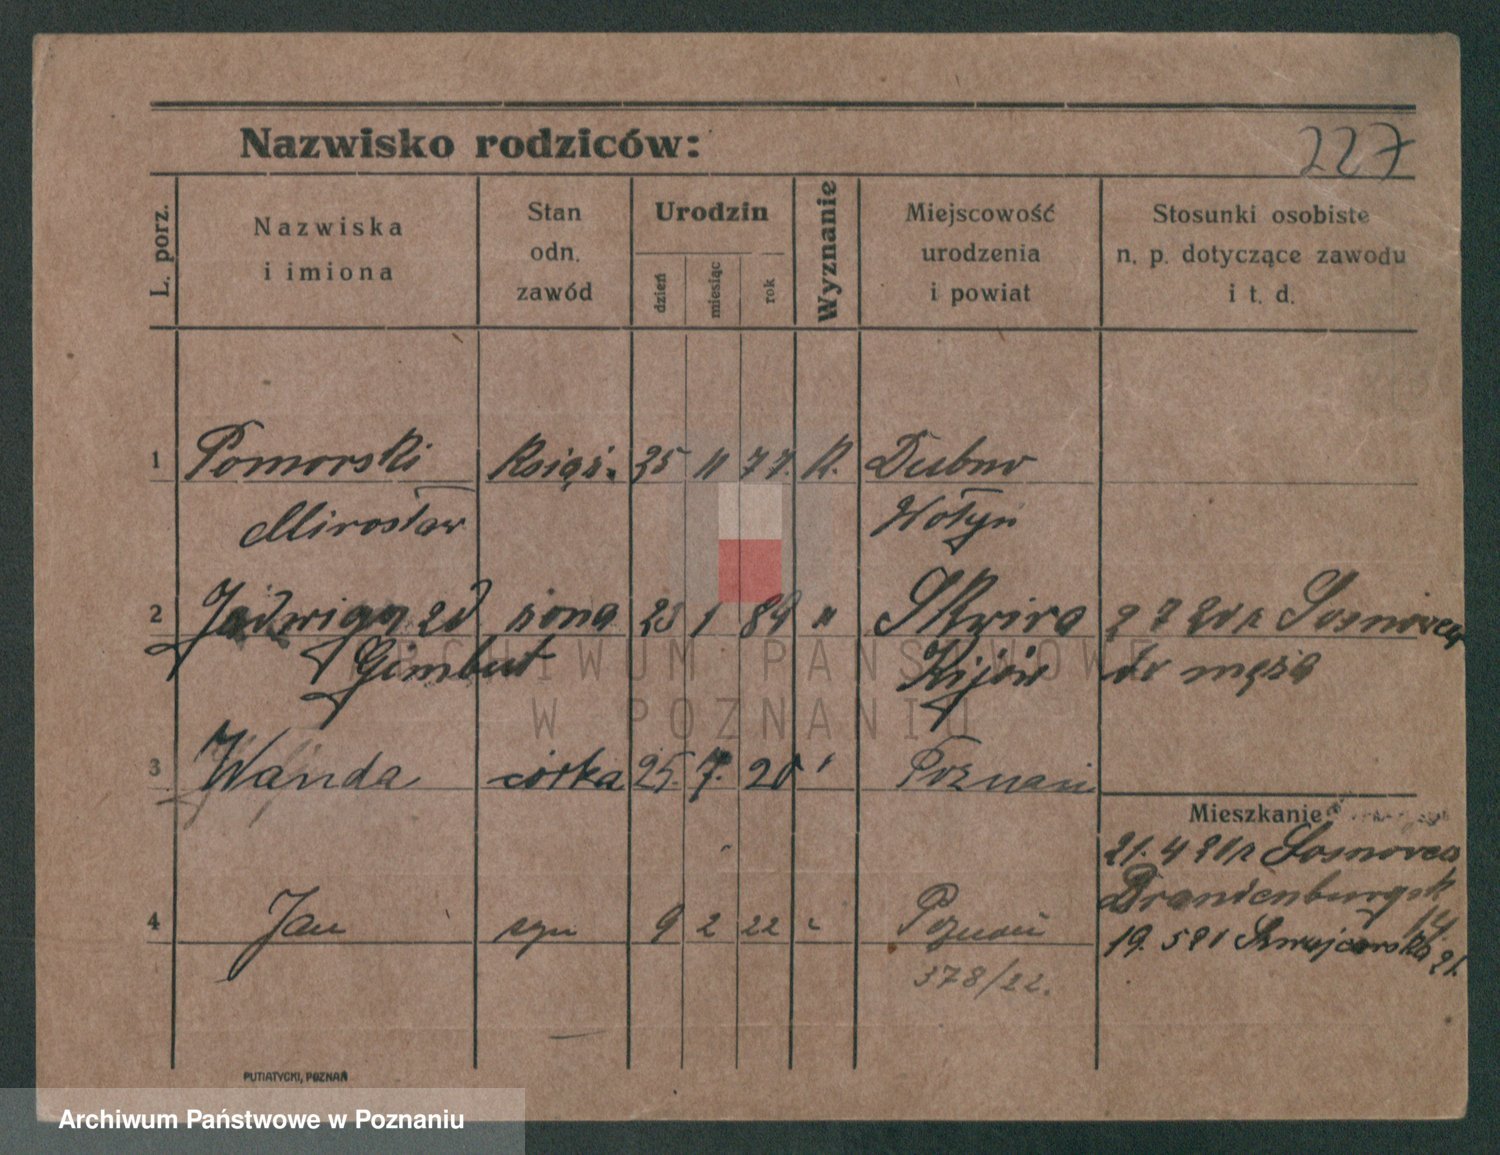 227
Nazwisko rodziców:
L. porz.
Nazwiska
i imiona
Stan
odn.
zawód
Urodzin
dzień
miesiąc
rok
Wyznanie
Miejscowość
urodzenia
i powiat
Stosunki osobiste
n. p. dotyczące zawodu
i t. d.
1 Pomorski Książ. 25 11 77. R. Dubno
Mirosław Wołyń
2 Jadwiga zd żona 23 1 84 " Skwira
Gimbut Kijów do męża
3 Wanda córka 25. 7. 20 " Poznań
Mieszkanie
21. 4 21 r Sosnowca
Brandenburgsk
14
4 Jan syn 9 2 22 " Poznań 19. 5 21
21.
378/22.
PUTIATYCKI, POZNAŃ
ARCHIWUM PAŃSTWOWE
W POZNANIU
Archiwum Państwowe w Poznaniu